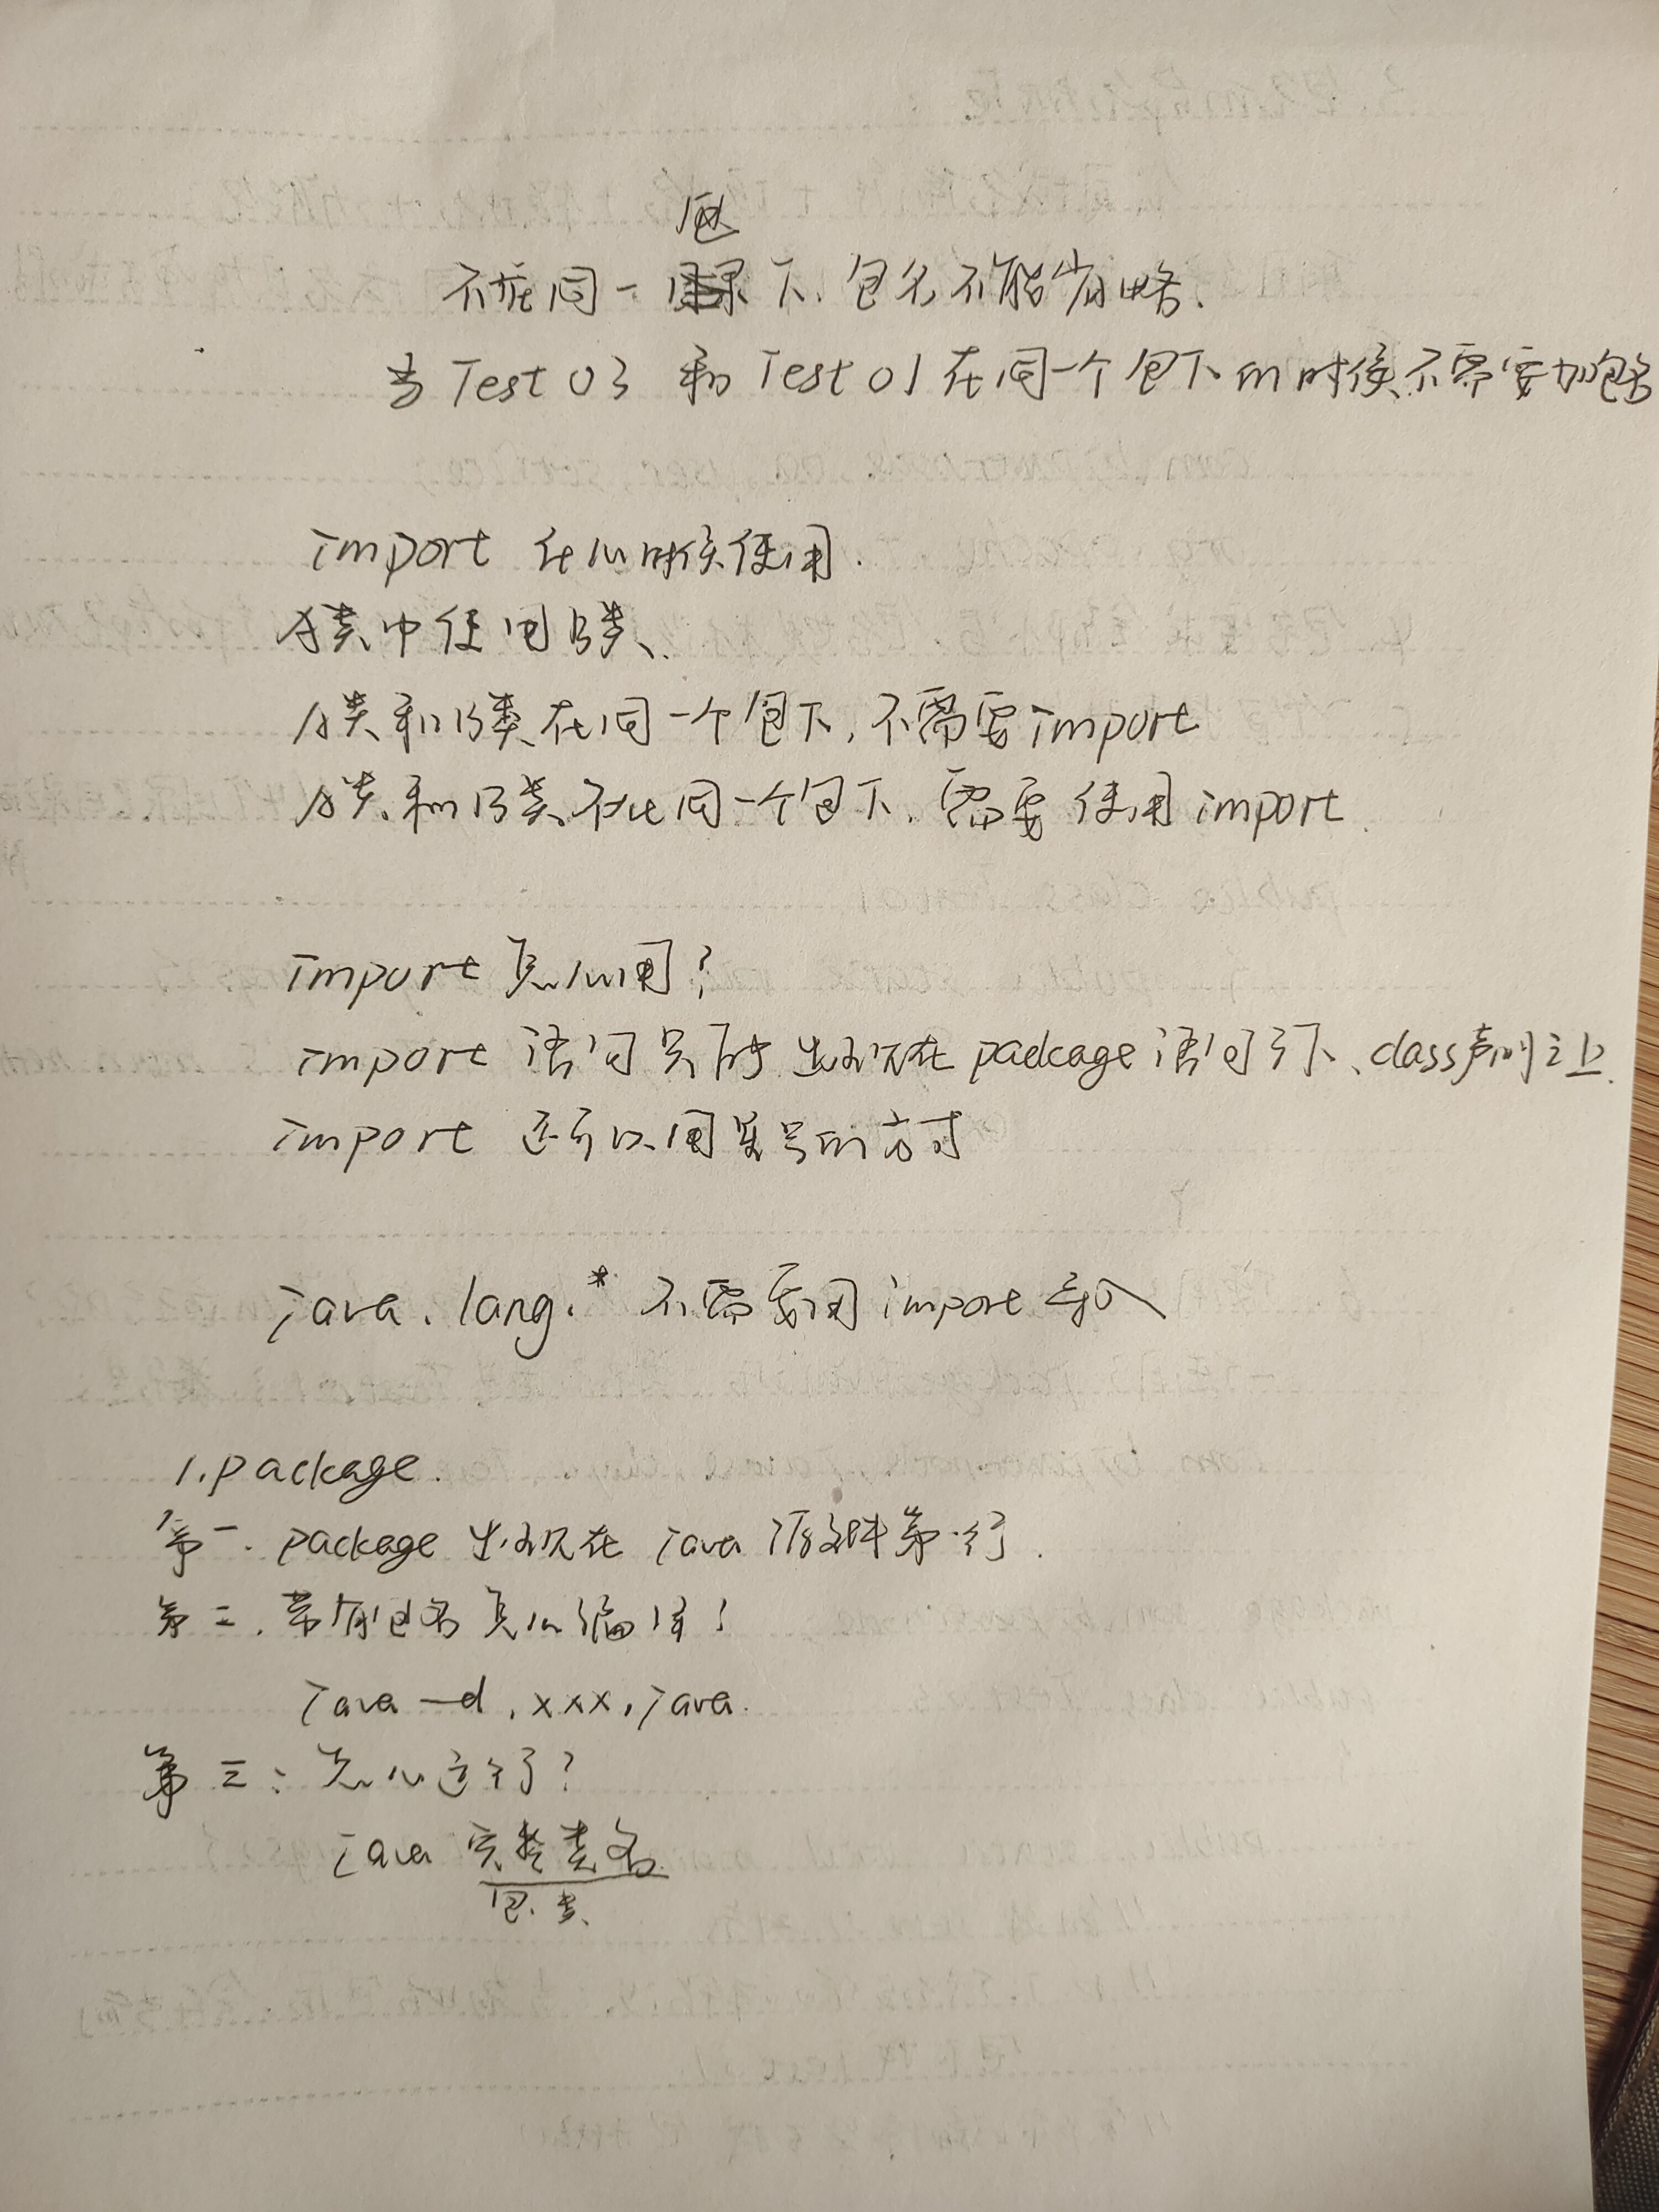 包
不在同一目录下，包名不能省略.
当Test03 和 Test01在同一个包下的时候不需要加包名
import 什么时候使用.
A类中使用B类、
A类和B类在同一个包下，不需要import
A类和B类不在同一个包下，需要使用import.
import怎么用？
import 语句只能出现在package语句之下、class声明之上.
import 还可以用星号的方式
java.lang.* 不需要用import导入
1.package.
第一.package出现在java源文件第一行.
第二.带有包名怎么编译？
java —d . xxx.java.
第三：怎么运行？
java 完整类名
包.类